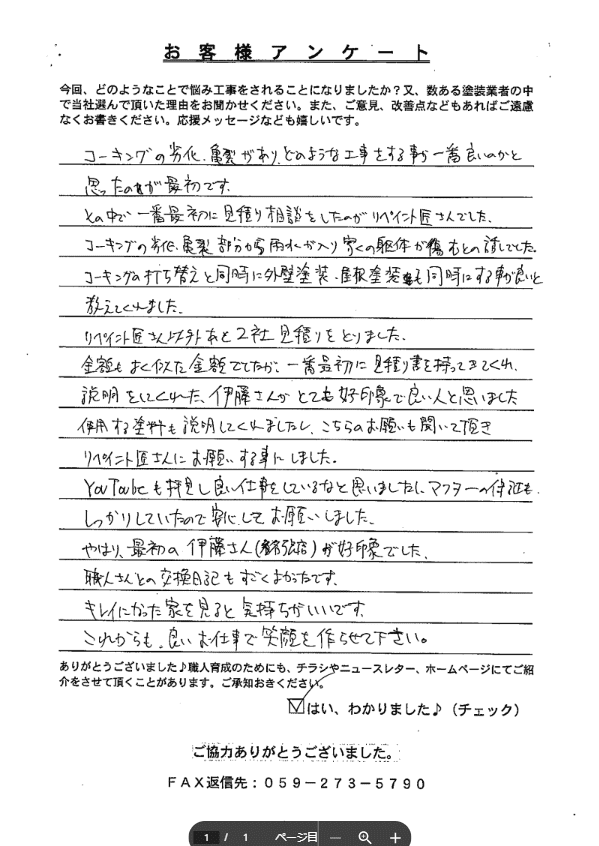 お客様アンケート
今回、どのようなことで悩み工事をされることになりましたか？又、数ある塗装業者の中
で当社選んで頂いた理由をお聞かせください。また、ご意見、改善点などもあればご遠慮
なくお書きください。応援メッセージなども嬉しいです。
コーキングの劣化、亀裂があり、どのような工事をする事が一番良いのかと
思ったのが最初です。
その中で一番最初に見積り相談をしたのがリペイント匠さんでした。
コーキングの劣化、亀裂部分から雨水が入り家の躯体が傷むとの話しでした。
コーキングの打ち替えと同時に外壁塗装、屋根塗装も同時にする事が良いと
教えてくれました。
リペイント匠さん以外あと2社見積りをとりました。
金額もよく似た金額でしたが、一番最初に見積り書を持ってきてくれ、
説明をしてくれた、伊藤さんがとても好印象で良い人と思いました
使用する塗料も説明してくれましたし、こちらのお願いも聞いて頂き
リペイント匠さんにお願いする事にしました。
YouTubeも拝見し良い仕事をしているなと思いましたし、アフターの保証も
しっかりしていたので安心してお願いしました。
やはり、最初の伊藤さん(名張店)が好印象でした、
職人さんとの交換日記もすごくよかったです。
キレイになった家を見ると気持ちがいいです。
これからも、良いお仕事で笑顔を作らせて下さい。
ありがとうございました♪職人育成のためにも、チラシやニュースレター、ホームページにてご紹
介をさせて頂くことがあります。ご承知おきください。
☑はい、わかりました♪（チェック）
ご協力ありがとうございました。
ＦＡＸ返信先：０５９－２７３－５７９０
1 / 1 ページ目